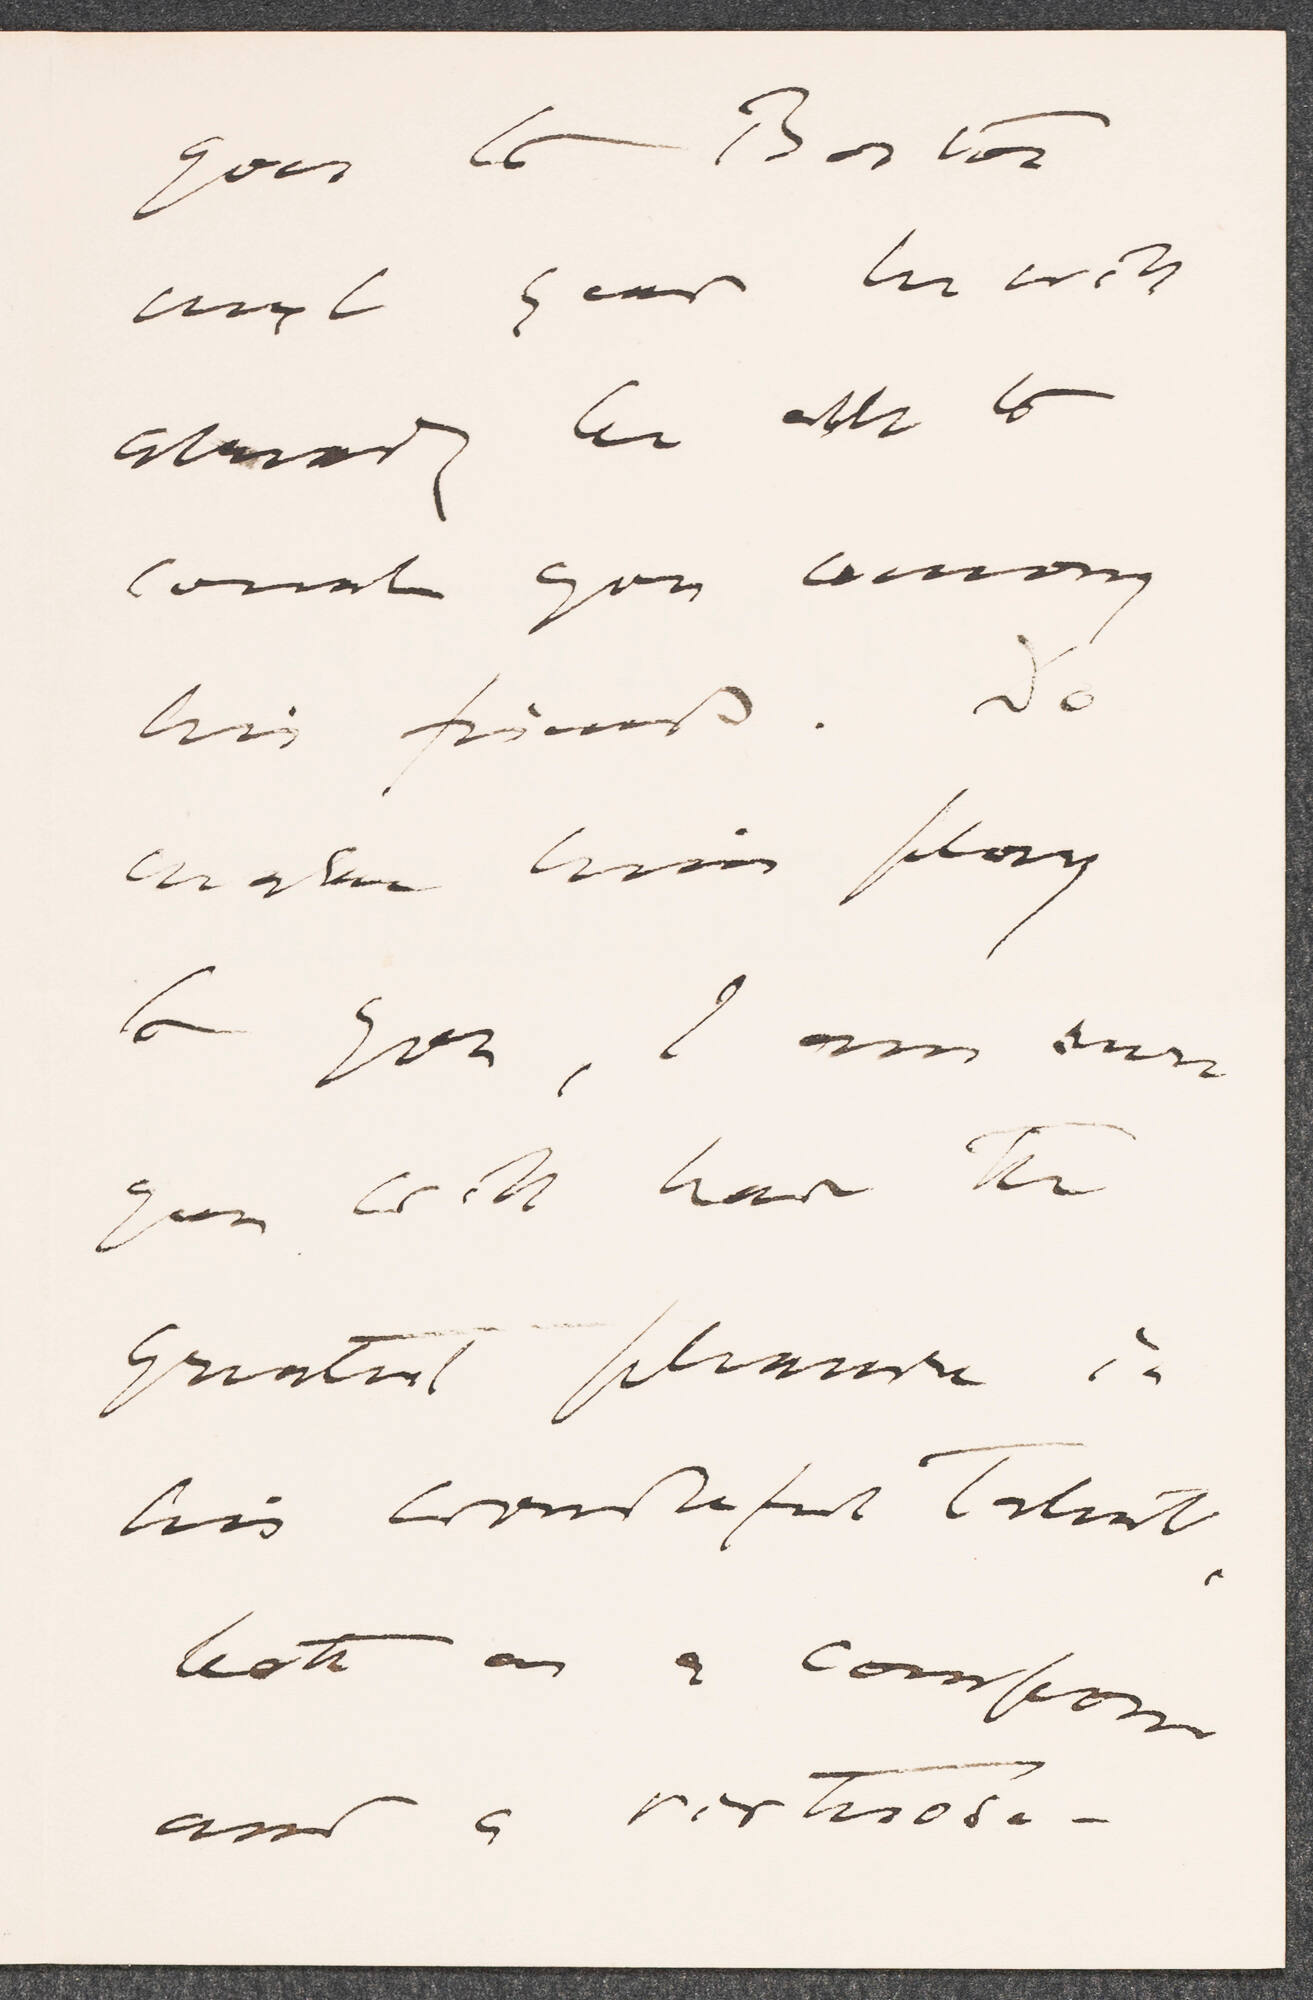 goes to Boston
next year he will
already be able to
count you among
his friends. Do
make him play
to you, I am sure
you will have the
greatest pleasure in
his wonderful talent,
both as a composer
and a virtuoso-